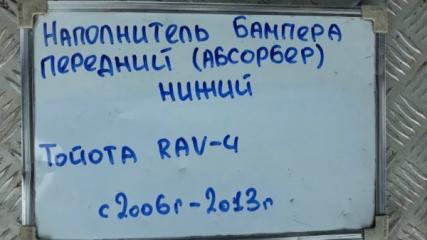 Наполнитель бампера
передний (абсорбер)
нижий
Тойота RAV-4
с 2006г-2013г